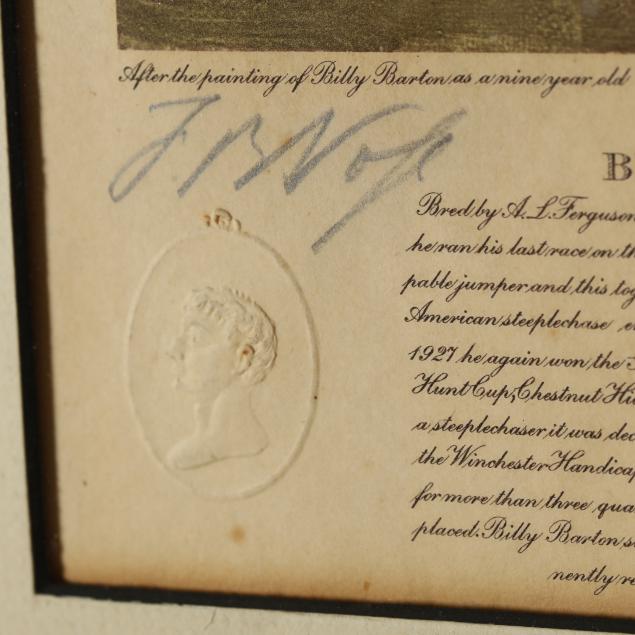 After the painting of Billy Barton as a nine year old
F B Voss
B
Bred by A. L. Ferguson
he ran his last race on th
pable jumper and this tog
American steeplechase e
1927 he again won the
Hunt Cup, Chestnut Hi
a steeplechaser, it was dec
the Winchester Handicap
for more than three qua
placed. Billy Barton s
nently re